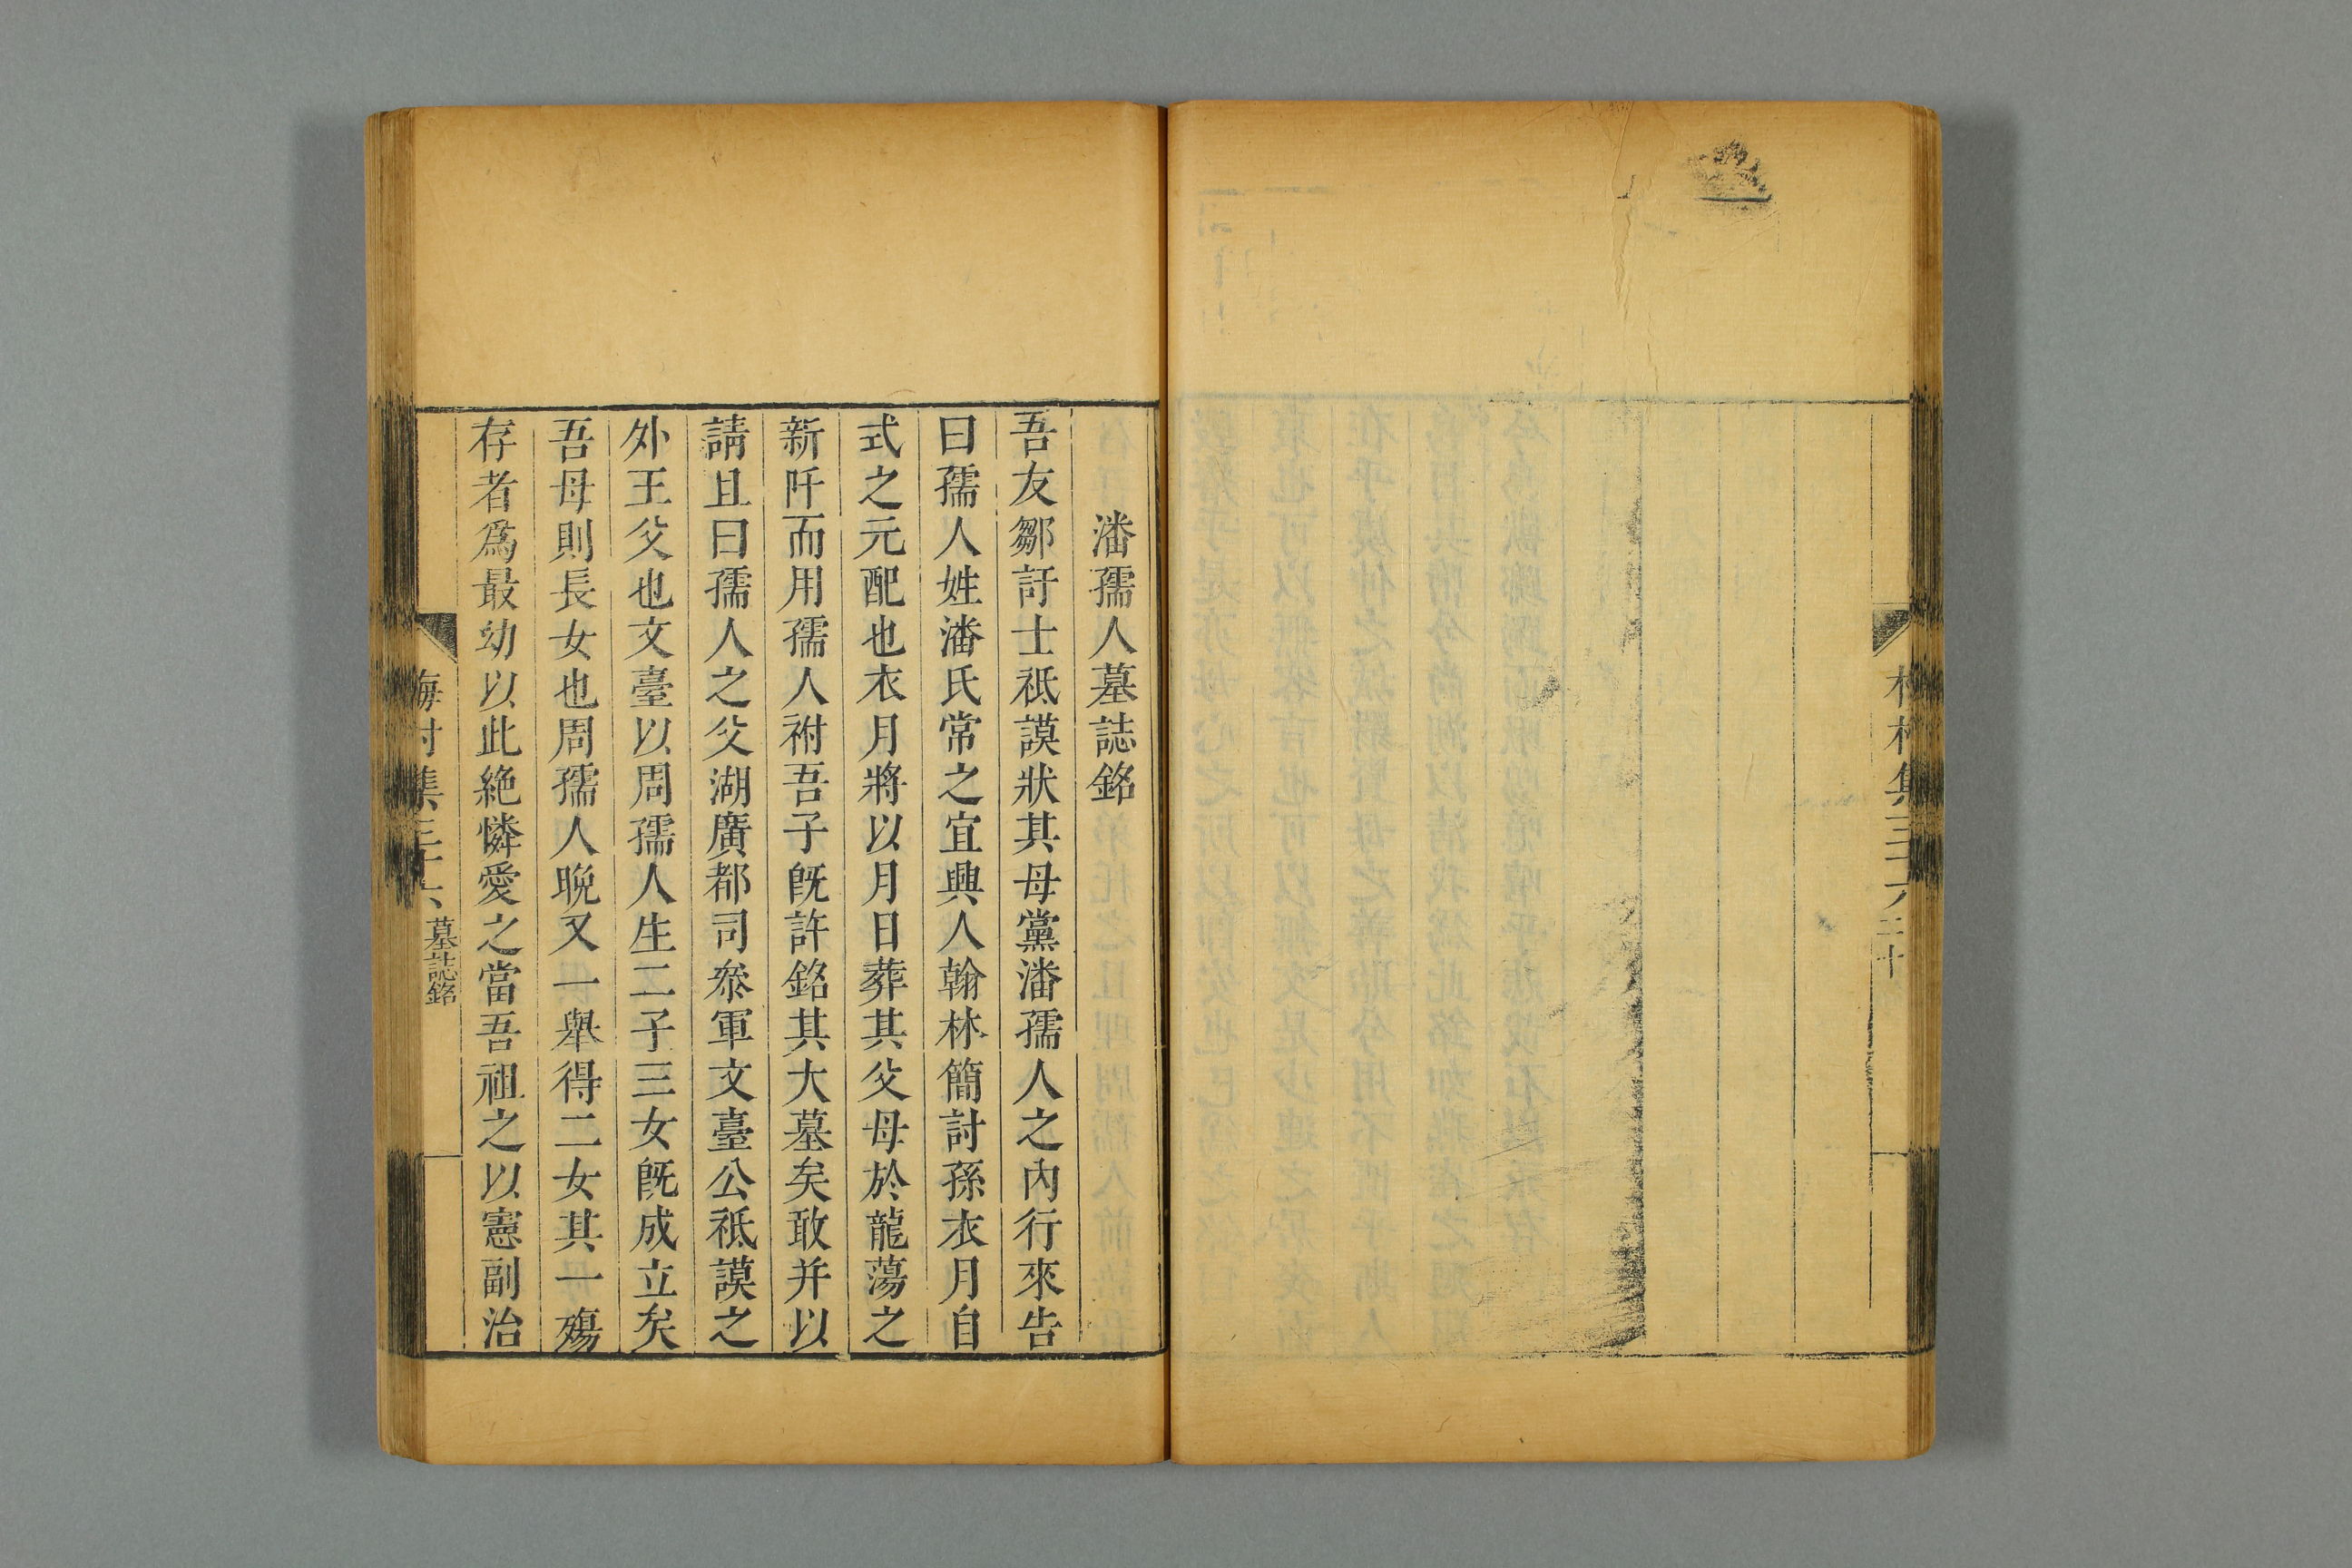 潘孺人墓誌銘
吾友鄒訏士祗謨狀其母黨潘孺人之內行來告
曰孺人姓潘氏常之宜興人翰林簡討孫衣月自
式之元配也衣月將以月日葬其父母於龍蕩之
新阡而用孺人祔吾子旣許銘其大墓矣敢并以
請且曰孺人之父湖廣都司叅軍文臺公祗謨之
外王父也文臺以周孺人生二子三女旣成立矣
吾母則長女也周孺人晚又一舉得二女其一殤
存者爲最幼以此絶憐愛之當吾祖之以憲副治
梅村集三十六
墓誌銘
村集三十六
二十